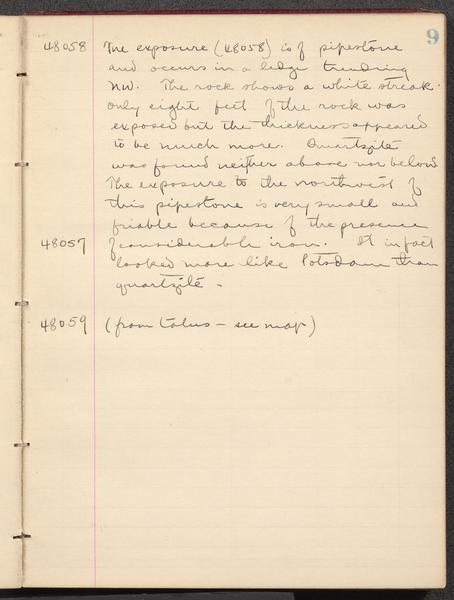 9
48058 The exposure (48058) is of pipestone
and occurs in a ledge trending
NW. The rock shows a white streak.
Only eight feet of the rock was
exposed but the thickness appeared
to be much more. Quartzite
was found neither above nor below
The exposure to the northwest of
this pipestone is very small and
friable because of the presence
48057 of considerable iron. It in fact
looked more like Potsdam than
quartzite.
48059 (from talus - see map)